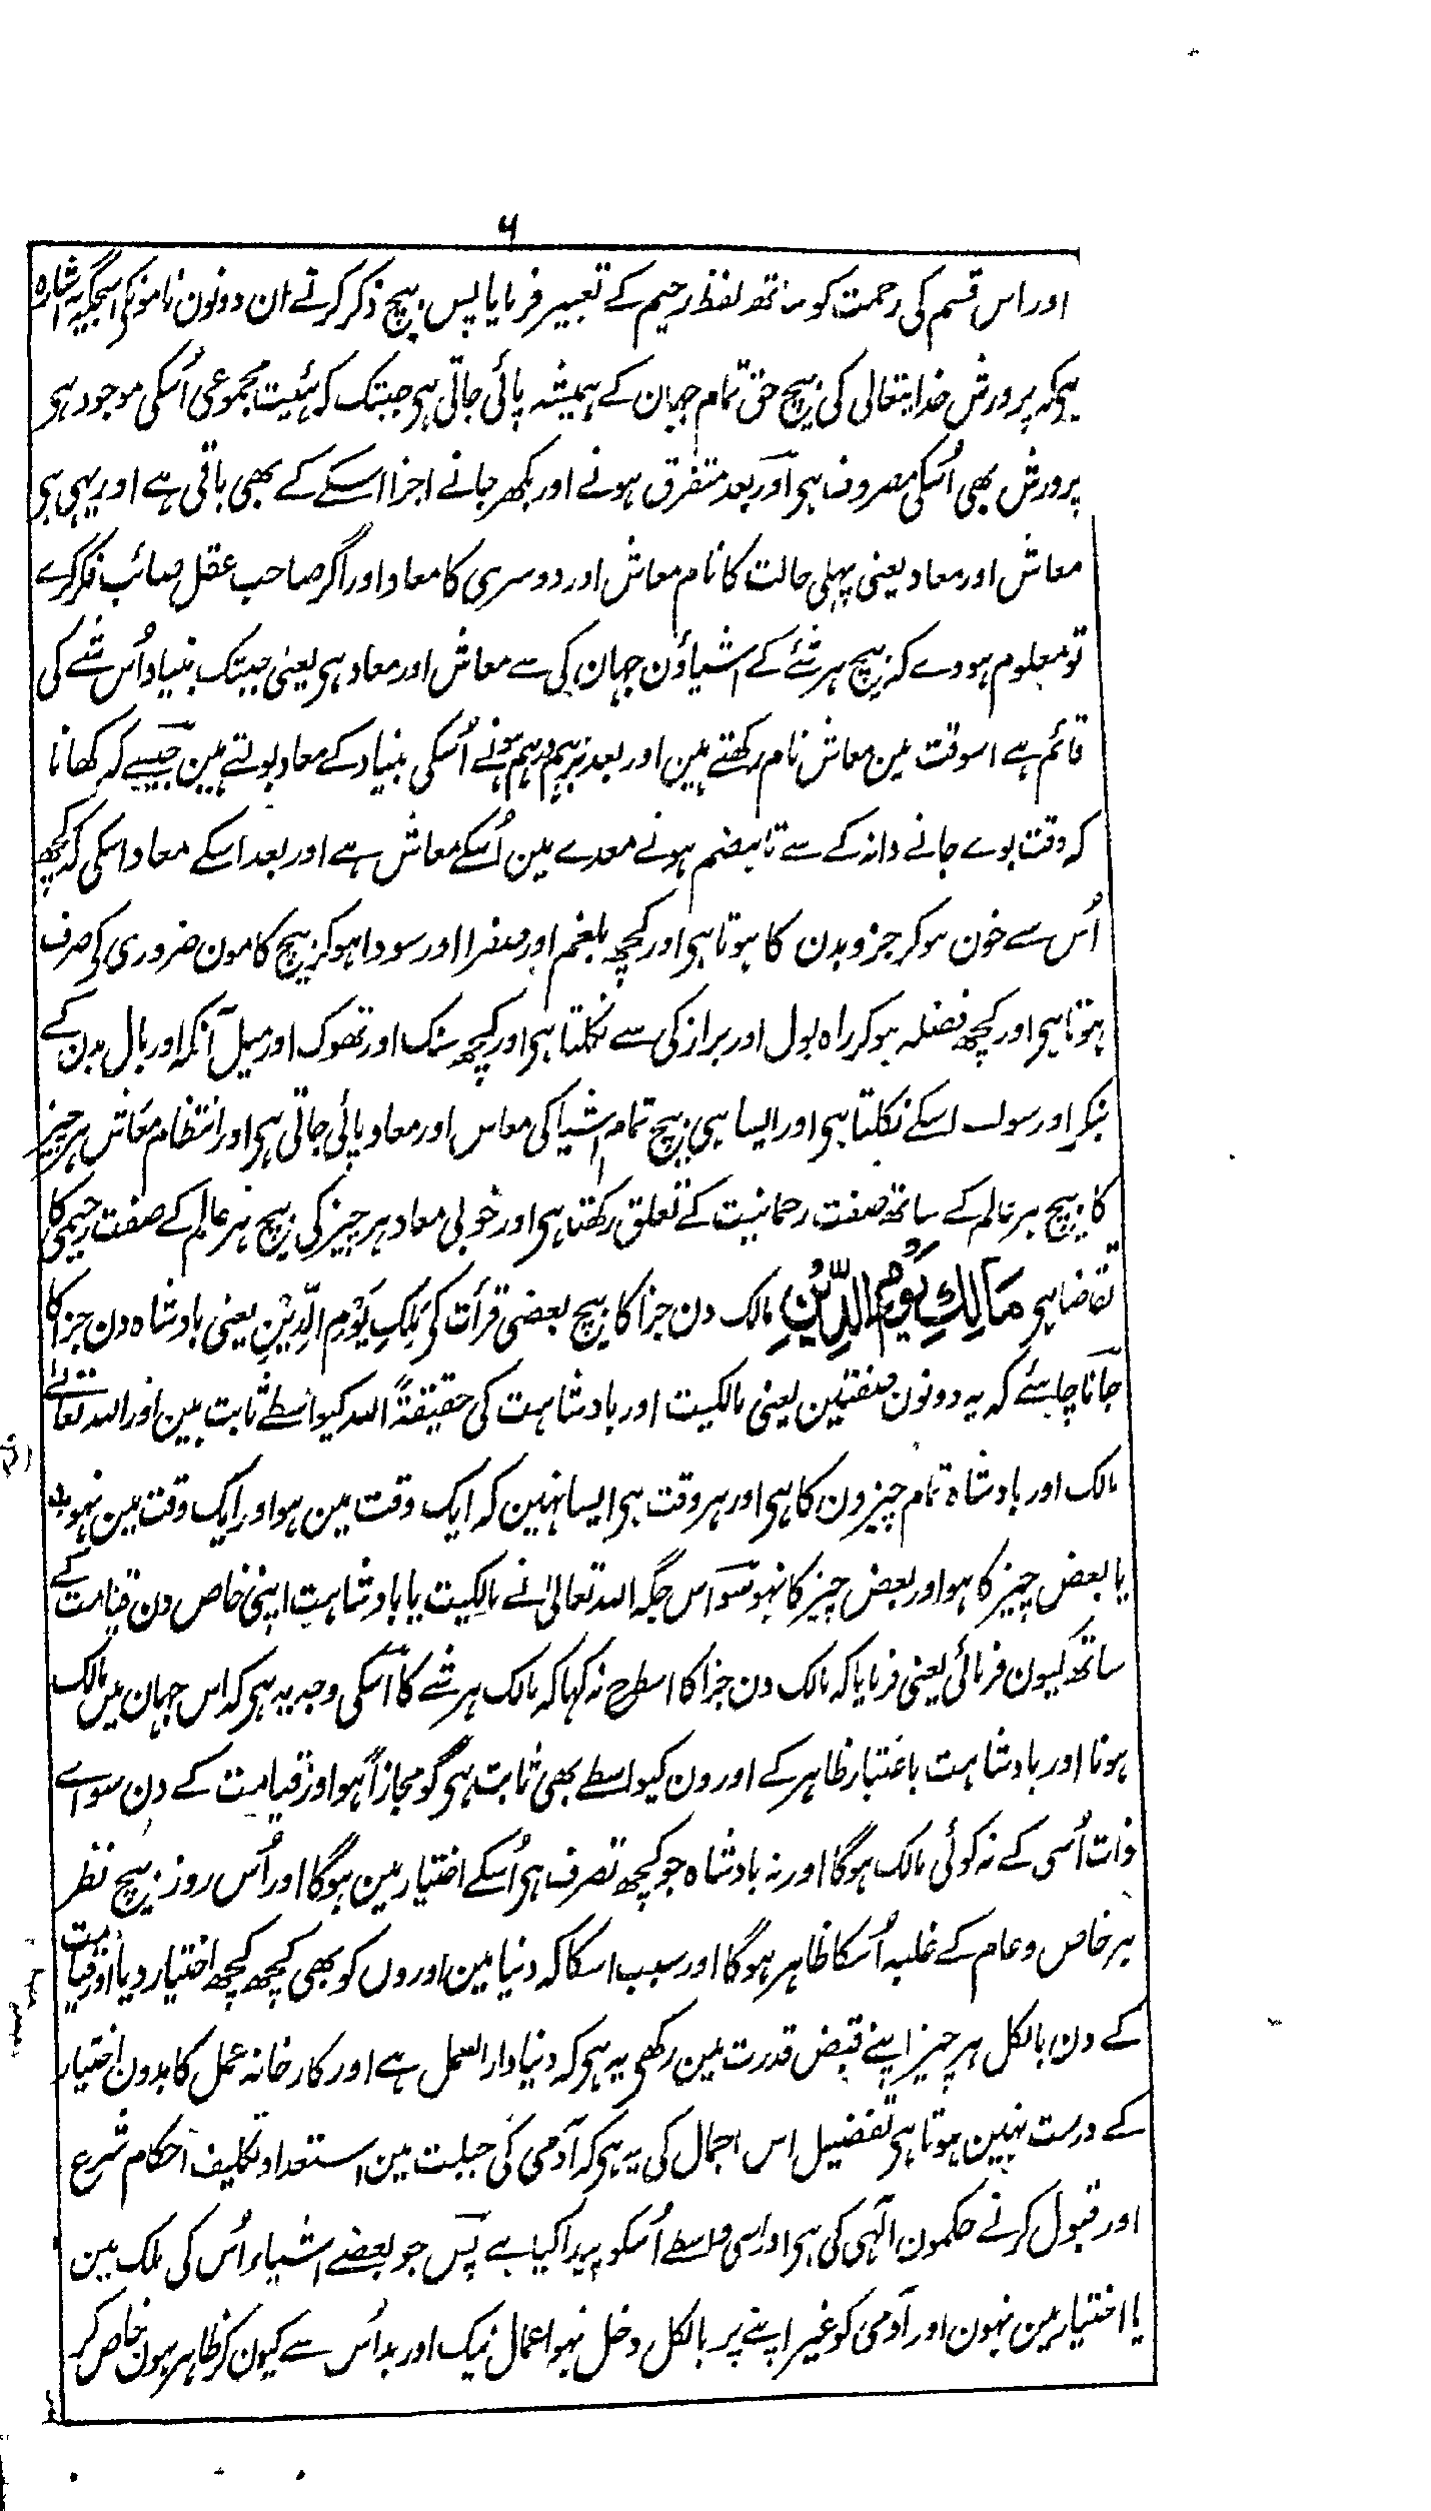 ۶
اور اس قسم کی رحمت کو ساتھ لفظ رحیم کے تعبیر فرمایا پس بیچ ذکر کرنے ان دونون نامونکی اسجگہ اشارہ
ہیکہ پرورش خدایتعالی کی بیچ حق تمام جہان کے ہمیشہ پائی جاتی ہی جبتک کہ ہئیت مجموعی اُسکی موجود ہی
پرورش بھی اُسکی مصروف ہی اور بعد متفرق ہونے اور بکھر جانے اجزا اسکے کے بھی باقی ہے اور یہی ہی
معاش اور معاد یعنی پہلی حالت کا نام معاش اور دوسری کا معاد اور اگر صاحب عقل صائب فکر کرے
تو معلوم ہووے کہ بیچ ہر شئے کے اشیاؤن جہان کی سے معاش اور معاد ہی یعنی جبتک بنیاد اُس شے کی
قائم ہے اسوقت مین معاش نام رکھتے ہین اور بعد برہم درہم ہونے اُسکی بنیاد کے معاد بولتے ہین جیسے کہ کھانا
کہ وقت بوے جانے دانہ کے سے تا ہضم ہونے معدے مین اُسکے معاش ہے اور بعد اسکے معاد اسکی کہ کچھ
اُس سے خون ہو کر جزو بدن کا ہوتا ہی اور کچھ بلغم اور صفرا اور سودا ہو کر بیچ کامون ضروری کی صرف
ہوتا ہی اور کچھ فضلہ ہو کر راہ بول اور براز کی سے نکلتا ہی اور کچھ سنک اور تھوک اور میل آنکہ اور بال بدن کے
بنکر اور سواے اسکے نکلتا ہی اور ایسا ہی بیچ تمام اشیا کی معاس اور معاد پائی جاتی ہی اور انتظام معاش ہر چیز
کا بیچ ہر عالم کے ساتھ صفت رحمانیت کے تعلق رکھتا ہی اور خوبی معاد ہر چیز کی بیچ ہر عالم کے صفت رحیمی کا
تقاضا ہی مَالِكِ يَوْمِ الدِّيْنِ مالک دن جزا کا بیچ بعضی قرأت کی مَلِكِ يَوْمِ الدِّيْنِ یعنی بادشاہ دن جزا کا
جاننا چاہئے کہ یہ دونون صفتین یعنی مالکیت اور بادشاہت کی حقیقۃً اللہ کیواسطے ثابت ہین اور اللہ تعالےٰ
مالک اور بادشاہ تمام چیزون کا ہی اور ہر وقت ہی ایسا نہین کہ ایک وقت مین ہو اور ایک وقت مین نہو
یا بعض چیز کا ہو اور بعض چیز کا نہو سو اس جگہ اللہ تعالیٰ نے مالکیت یا بادشاہت اپنی خاص دن قیامت کے
ساتھ کیون فرمائی یعنی فرمایا کہ مالک دن جزا کا اسطرح نہ کہا کہ مالک ہر شے کا اُسکی وجہ یہ ہی کہ اس جہان میں مالک
ہونا اور بادشاہت باعتبار ظاہر کے اورون کیواسطے بھی ثابت ہی گو مجازاً ہو اور قیامت کے دن سواے
ذات اُسی کے نہ کوئی مالک ہوگا اور نہ بادشاہ جو کچھ تصرف ہی اُسکے اختیار مین ہوگا اور اُس روز بیچ نظر
ہر خاص و عام کے غلبہ اُسکا ظاہر ہوگا اور سبب اسکا کہ دنیا مین اوروں کو بھی کچھ کچھ اختیار دیا اور قیامت
کے دن بالکل ہر چیز اپنے قبض قدرت مین رکھی یہ ہی کہ دنیا دار العمل ہے اور کارخانہ عمل کا بدون اختیار
کے درست نہین ہوتا ہی تفضیل اس اجمال کی یہ ہی کہ آدمی کی جبلت مین استعداد تکلیف احکام شرع
اور قبول کرنے حکمون الٰہی کی ہی اور اسی واسطے اُسکو پیدا کیا ہے پس جو بعضے اشیاء اُس کی ملک مین
یا اختیار مین نہون اور آدمی کو غیر اپنے پر بالکل دخل نہو اعمال نیک اور بد اُس سے کیون کر ظاہر ہون خاص کر